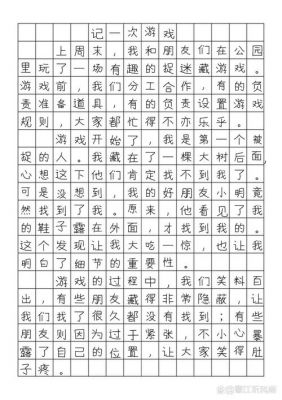 记一次游戏
上周末，我和朋友们在公园
里玩了一场有趣的捉迷藏游戏。
游戏前，我们分工合作，有的负
责准备道具，有的负责设置游戏
规则，大家都忙得不亦乐乎。
游戏开始了，我是第一个被
捉的人。我藏在了一棵大树后面，
心想这下他们肯定找不到我了。
可是没想到，我的好朋友小明竟
然找到了我。原来，他看见了我
的鞋子露在外面，才找到我的。
这个发现让我大吃一惊，也让我
明白了细节的重要性。
游戏的过程中，我们笑料百
出，有些朋友藏得非常隐蔽，让
我们找了很久都没有找到；有些
朋友则因为过于紧张，不小心暴
露了自己的位置，让大家笑得肚
子疼。